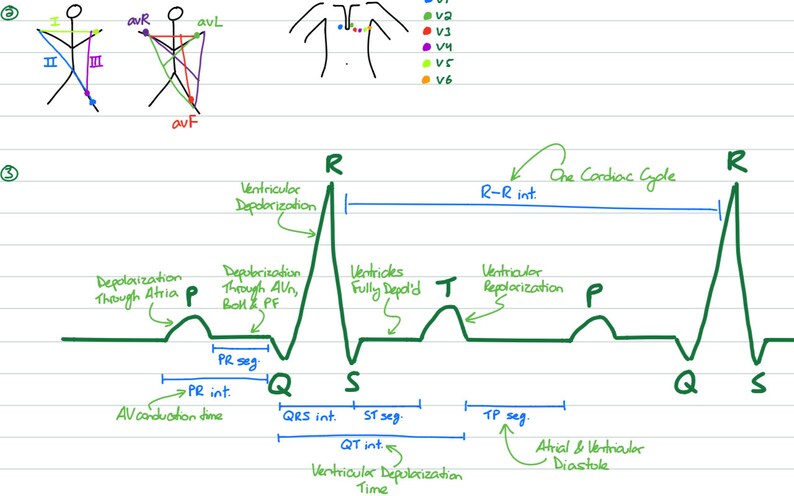 ②
I
II
III
avR
avL
avF
V2
V3
V4
V5
V6
③
R
R
One Cardiac Cycle
R-R int.
Ventricular
Depolarization
Depolarization
Through Atria
P
Depolarization
Through AVn,
BoH & PF
Ventricles
Fully Depol'd
T
Ventricular
Repolarization
P
PR seg.
PR int.
Q
S
Q
S
AV conduction time
QRS int.
ST seg.
TP seg.
QT int.
Atrial & Ventricular
Diastole
Ventricular Depolarization
Time